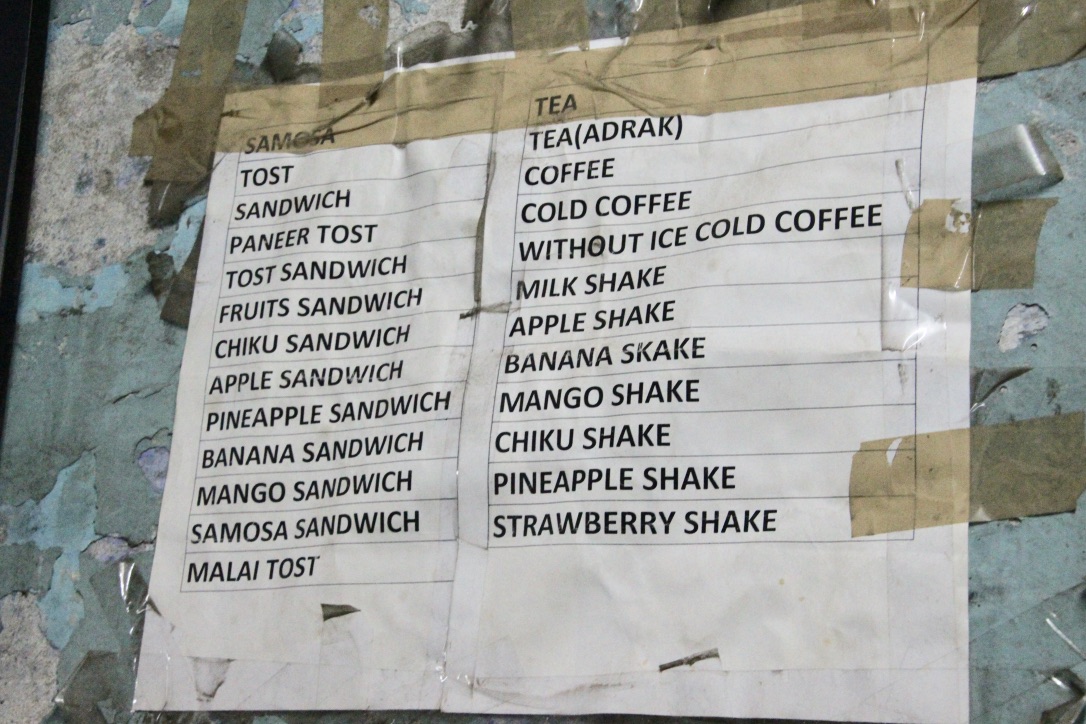 SAMOSA
TOST
SANDWICH
PANEER TOST
TOST SANDWICH
FRUITS SANDWICH
CHIKU SANDWICH
APPLE SANDWICH
PINEAPPLE SANDWICH
BANANA SANDWICH
MANGO SANDWICH
SAMOSA SANDWICH
MALAI TOST
TEA
TEA(ADRAK)
COFFEE
COLD COFFEE
WITHOUT ICE COLD COFFEE
MILK SHAKE
APPLE SHAKE
BANANA SKAKE
MANGO SHAKE
CHIKU SHAKE
PINEAPPLE SHAKE
STRAWBERRY SHAKE